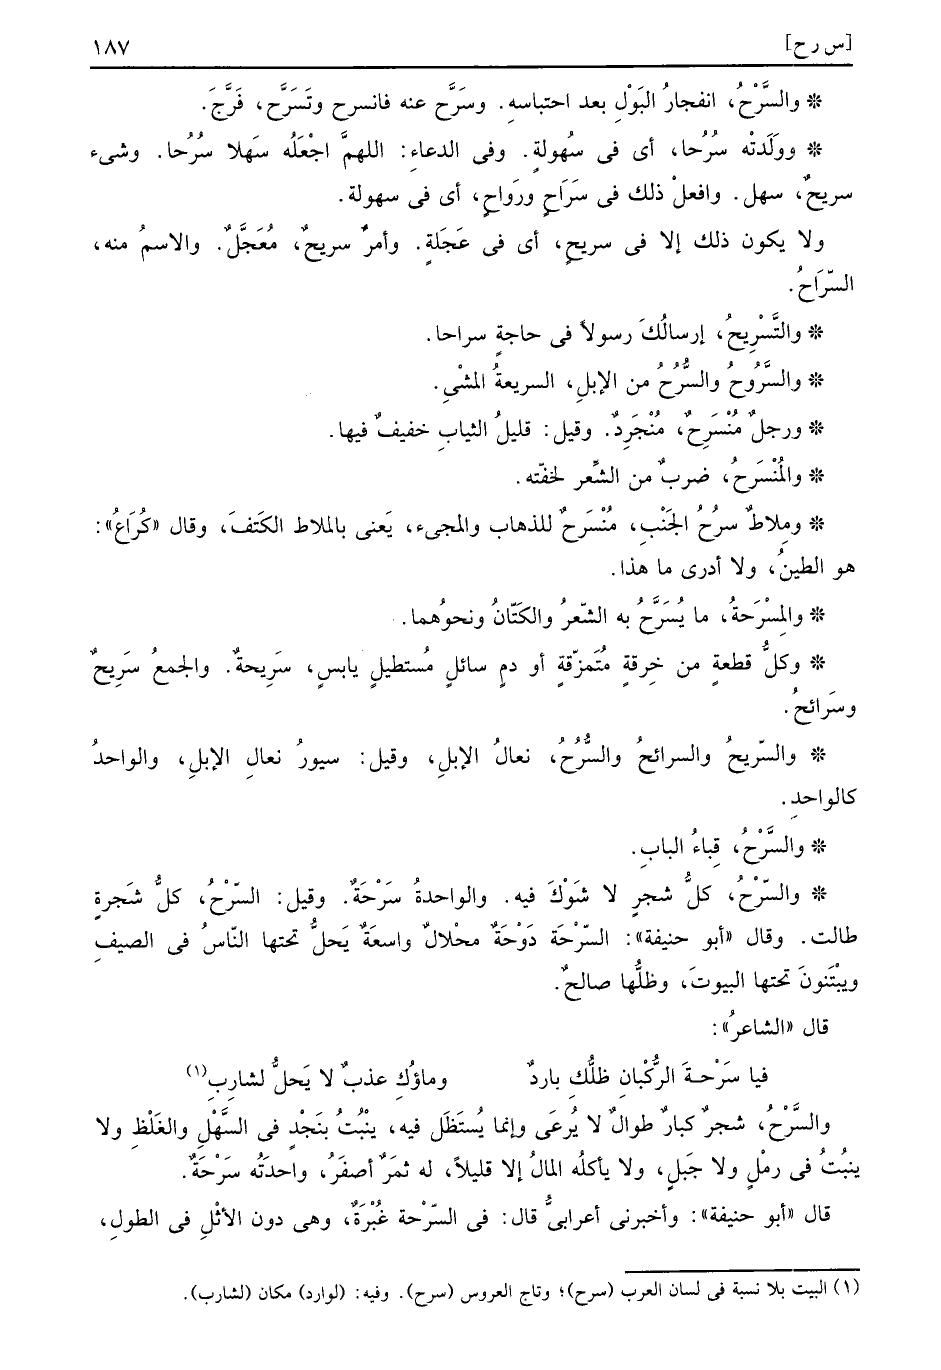 [س ر ح] ١٨٧
❊ والسَّرْحُ، انفجارُ البَوْلِ بعد احتباسهِ. وسَرَّح عنه فانسرح وتَسَرَّح، فَرَّجَ.
❊ ووَلَدتْه سُرُحا، أى فى سُهولةٍ. وفى الدعاءِ: اللهمَّ اجْعَلْه سَهلا سُرُحا. وشىء
سريحٌ، سهل. وافعلْ ذلك فى سَرَاحٍ ورَواحٍ، أى فى سهولة.
ولا يكون ذلك إلا فى سريحٍ، أى فى عَجَلةٍ. وأمرٌ سريحٌ، مُعَجَّلٌ. والاسمُ منه،
السّرَاحُ.
❊ والتَّسْرِيحُ، إرسالُكَ رسولاً فى حاجةٍ سراحا.
❊ والسَّرُوحُ والسُّرُحُ من الإبلِ، السريعةُ المشْىِ.
❊ ورجلٌ مُنْسَرِحٌ، مُنْجَرِدٌ. وقيل: قليلُ الثيابِ خفيفٌ فيها.
❊ والمُنْسَرِحُ، ضربٌ من الشِّعر لخفّته.
❊ ومِلاطٌ سرُحُ الجَنْبِ، مُنْسَرِحٌ للذهاب والمجىء، يَعنى بالملاط الكَتفَ، وقال «كُرَاعُ»:
هو الطينُ، ولا أدرى ما هذا.
❊ والمِسْرَحةُ، ما يُسَرَّحُ به الشّعرُ والكَتّانُ ونحوُهما.
❊ وكلُّ قطعةٍ من خِرقةٍ مُتَمزّقةٍ أو دمٍ سائلٍ مُستطيلٍ يابسٍ، سَرِيحةٌ. والجمعُ سَرِيحٌ
وسَرائحُ.
❊ والسّريحُ والسرائحُ والسُّرُحُ، نعالُ الإبلِ، وقيل: سيورُ نعالِ الإبلِ، والواحدُ
كالواحدِ.
❊ والسَّرْحُ، قِباءُ البابِ.
❊ والسّرْحُ، كلُّ شجرٍ لا شَوْكَ فيه. والواحدةُ سَرْحَةٌ. وقيل: السّرْحُ، كلُّ شجرةٍ
طالت. وقال «أبو حنيفة»: السّرْحَة دَوْحَةٌ محْلالٌ واسعَةٌ يَحلُّ تحتها النّاسُ فى الصيفِ
ويبْتَنونَ تحتها البيوتَ، وظلُّها صالحٌ.
قال «الشاعرُ»:
فيا سَرْحـةَ الرُّكْبانِ ظلُّكِ باردٌ وماؤكِ عذبٌ لا يَحلُّ لشاربِ(١)
والسَّرْحُ، شجرٌ كبارٌ طوالٌ لا يُرعَى وإنما يُستَظَل فيه، ينْبُتُ بنَجْدٍ فى السَّهْلِ والغَلْظِ ولا
ينبُتُ فى رملٍ ولا جَبَلٍ، ولا يأكلُه المالُ إلا قليلاً، له ثمَرٌ أصفَرُ، واحدَتُه سَرْحَةٌ.
قال «أبو حنيفة»: وأخبرنى أعرابىُّ قال: فى السّرْحة غُبْرَةٌ، وهى دون الأثْلِ فى الطولِ،
(١) البيت بلا نسبة فى لسان العرب (سرح)؛ وتاج العروس (سرح). وفيه: (لوارد) مكان (لشارب).